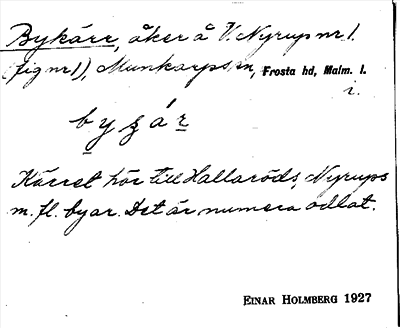 Bykärr, åker å V. Nyrup nr 1.
(fig nr 1), Munkarps sn, Frosta hd, Malm. l.
i.
b y ʒ á r
Kärret hör till Hallaröds, Nyrups
m. fl. byar. Det är numera odlat.
EINAR HOLMBERG 1927